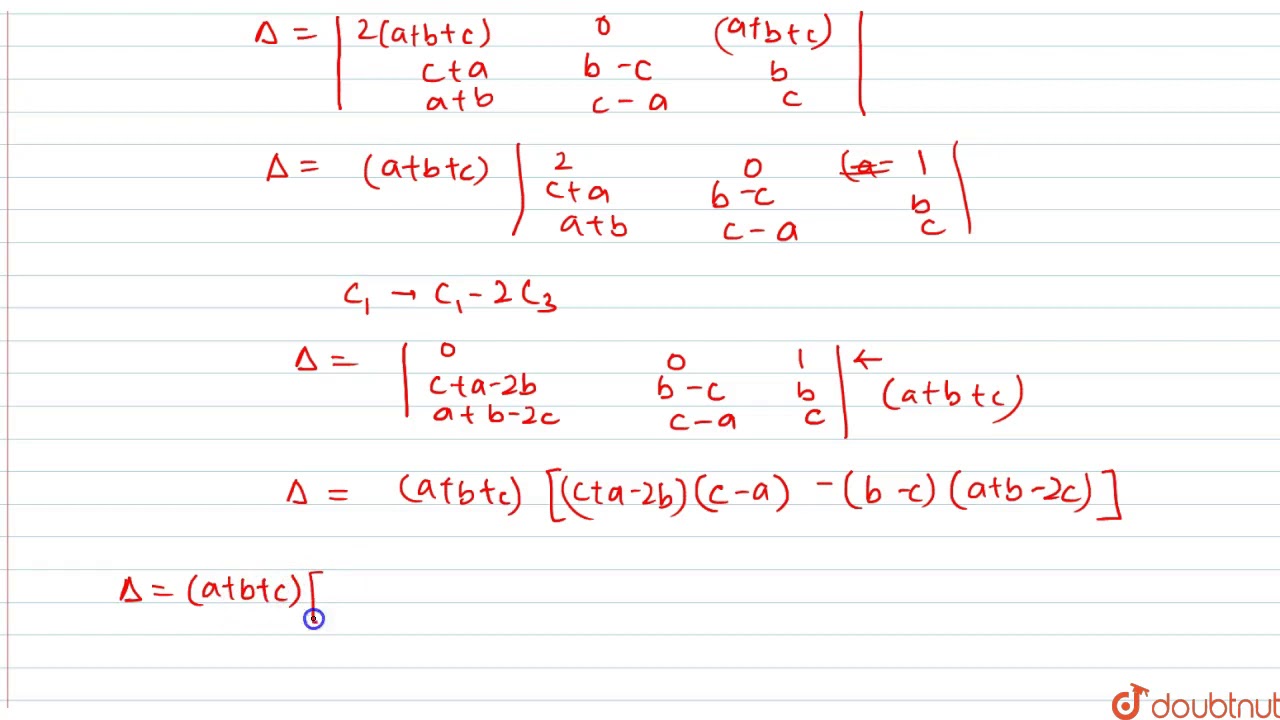 Δ = | 2(a+b+c) 0 (a+b+c) |
c+a b-c b
a+b c-a c
Δ = (a+b+c) | 2 0 (a- 1 |
c+a b-c b
a+b c-a c
C₁ → C₁ - 2C₃
Δ = | 0 0 1 | ←
c+a-2b b-c b (a+b+c)
a+b-2c c-a c
Δ = (a+b+c) [(c+a-2b)(c-a) - (b-c)(a+b-2c)]
Δ = (a+b+c)[
doubtnut